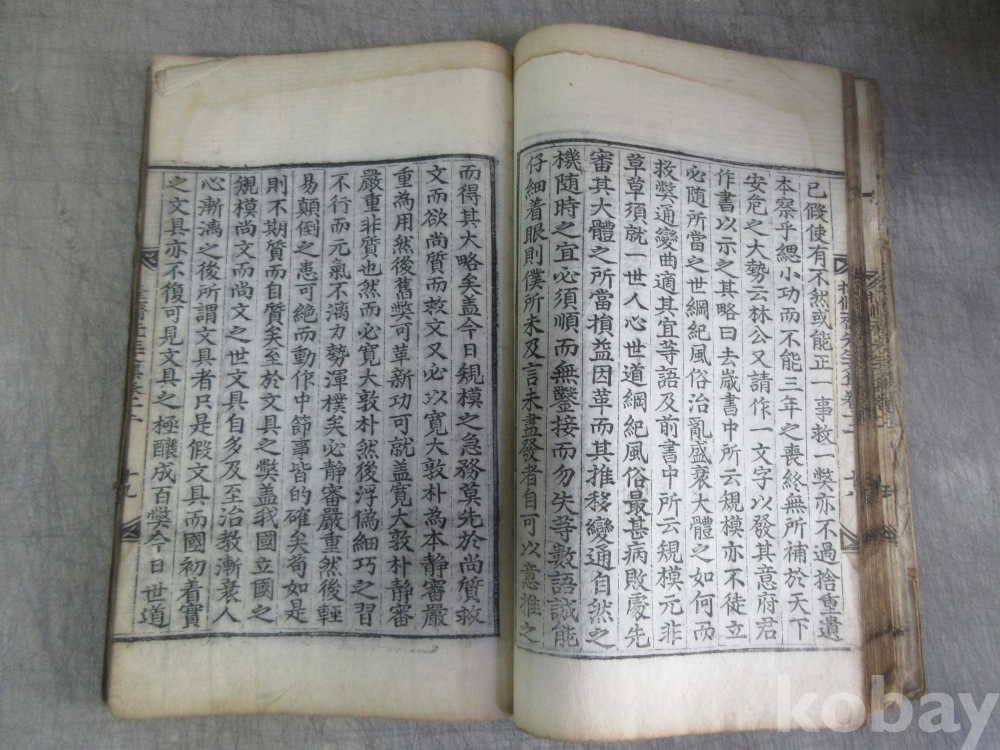 已假使有不然或能正一事救一弊亦不過捨重遺
本察乎緦小功而不能三年之喪終無所補於天下
安危之大勢云林公又請作一文字以發其意府君
作書以示之其略曰去歲書中所云規模亦不徒立
必隨所當之世綱紀風俗治亂盛衰大體之如何而
救弊通變曲適其宜等語及前書中所云規模元非
草草須就一世人心世道綱紀風俗最甚病敗處先
審其大體之所當損益因革而其推移變通自然之
機隨時之宜必須順而無鑿接而勿失等數語誠能
仔細着眼則僕所未及言未盡發者自可以意推之
而得其大略矣盖今日規模之急務莫先於尚質救
文而欲尚質而救文又必以寬大敦朴為本靜審嚴
重為用然後舊弊可革新功可就盖寬大敦朴靜審
嚴重非質也然而必寬大敦朴然後浮僞細巧之習
不行而元氣不漓力勢渾樸矣必靜審嚴重然後輕
易顛倒之患可絕而動作中節事皆的確矣苟如是
則不期質而自質矣至於文具之弊盖我國立國之
規模尚文而尚文之世文具自多及至治教漸衰人
心漸漓之後所謂文具者只是假文具而國初着實
之文具亦不復可見文具之極釀成百弊今日世道
十九
kobay